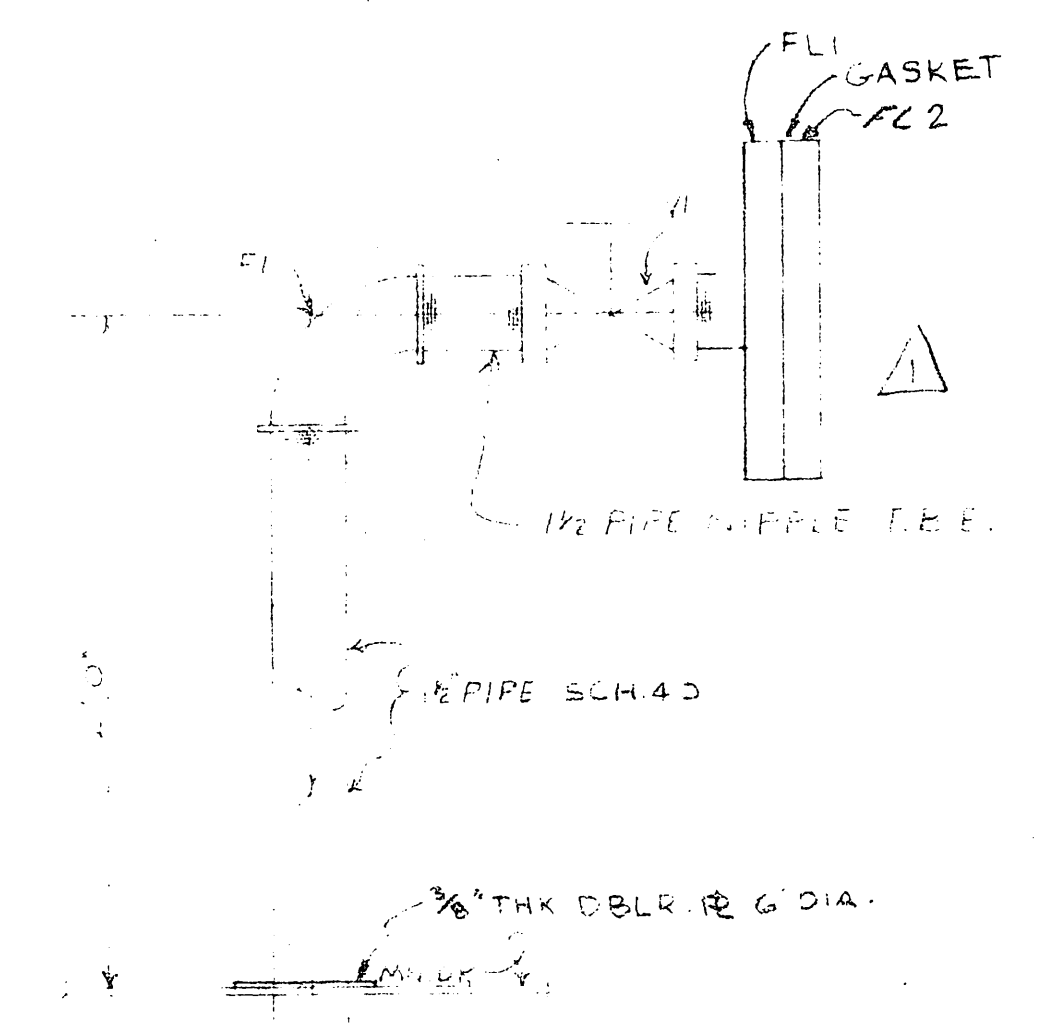 FL1
GASKET
FL2
V1
F1
1
1½ PIPE NIPPLE T.B.E.
1½" PIPE SCH.40
3/8" THK DBLR. PL 6" DIA.
MN DK